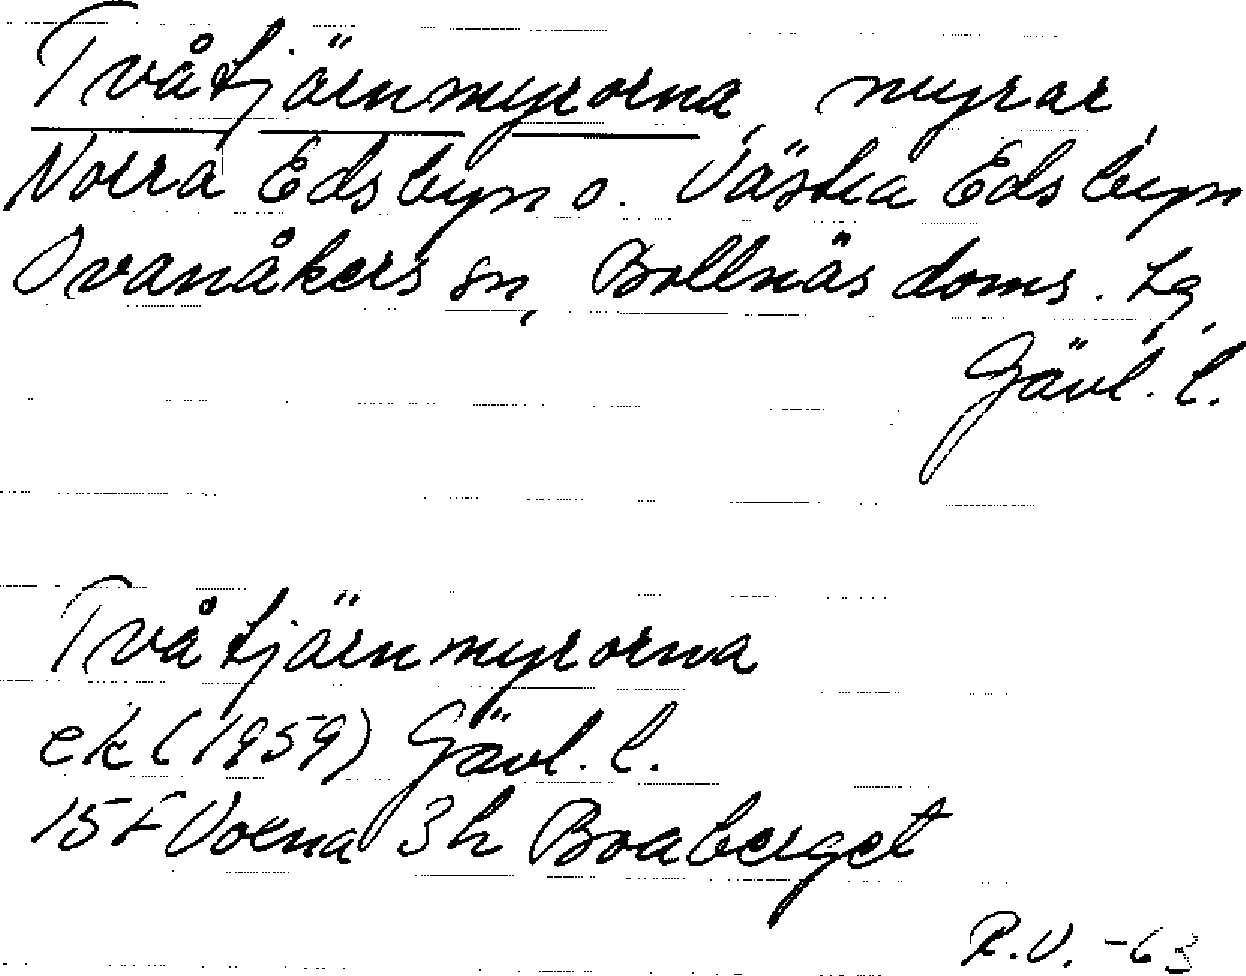 Tvåtjärnmyrorna, myrar,
Norra Edsbyn o. Västra Edsbyn
Ovanåkers sn, Bollnäs doms. lg,
Gävl. l.
Tvåtjärnmyrorna
ek (1959) Gävl. l.
15F Voxna 3h Boaberget
R.V. -63